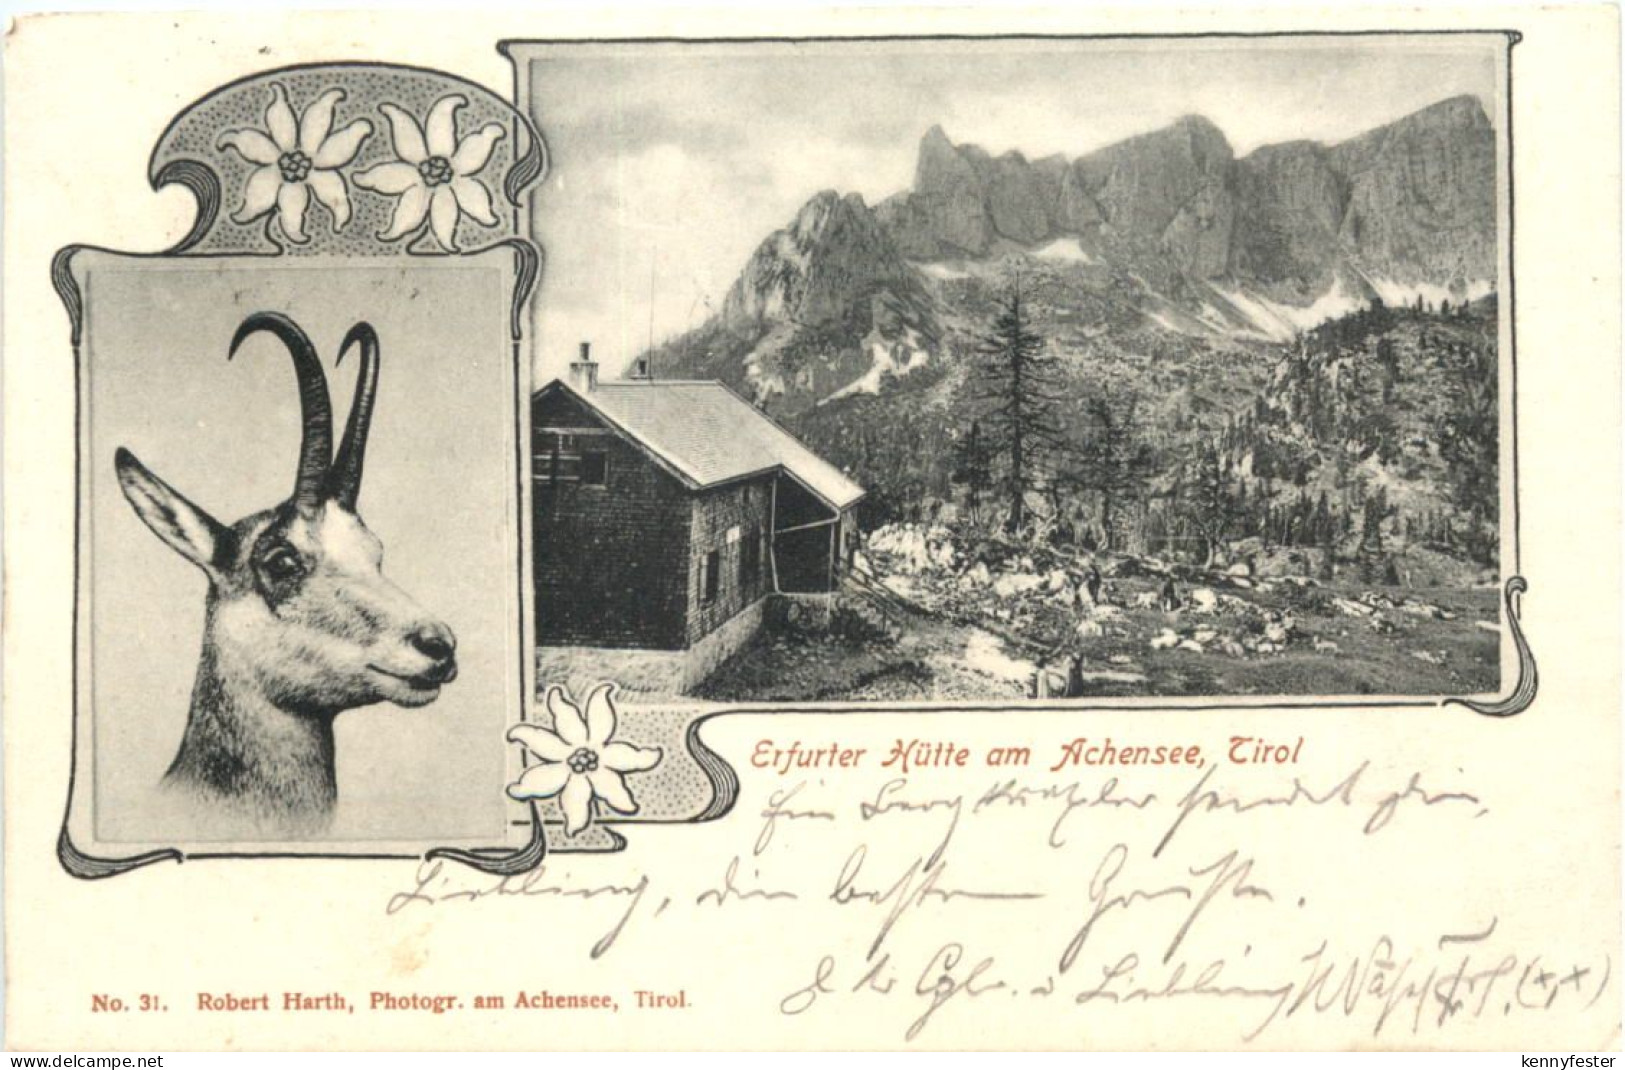 Erfurter Hütte am Achensee, Tirol
Ein sendet Dir,
Liebling, die besten Grüße.
Liebling
No. 31. Robert Harth, Photogr. am Achensee, Tirol.
www.delcampe.net
kennyfester